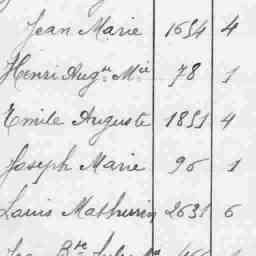 Jean Marie 1654 4
Henri Augte Mie 78 1
Emile Auguste 1851 4
Joseph Marie 96 1
Louis Mathurin 2631 6
Bte